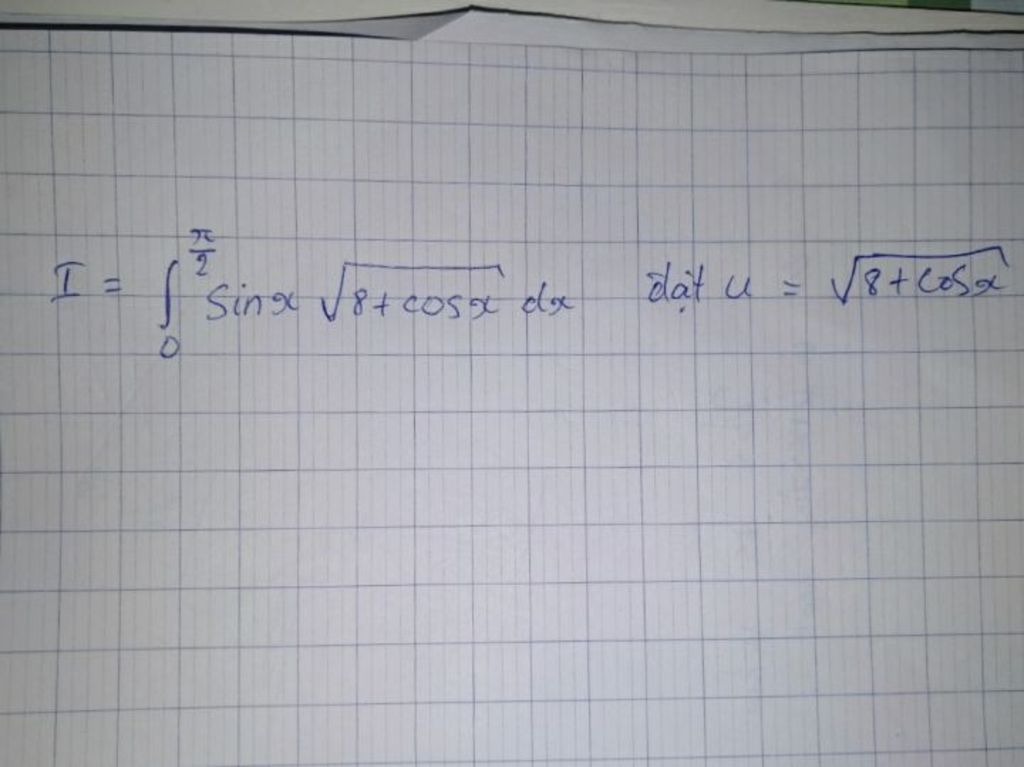 I = ∫₀^{π/2} sinx √(8+cosx) dx đặt u = √(8+cosx)